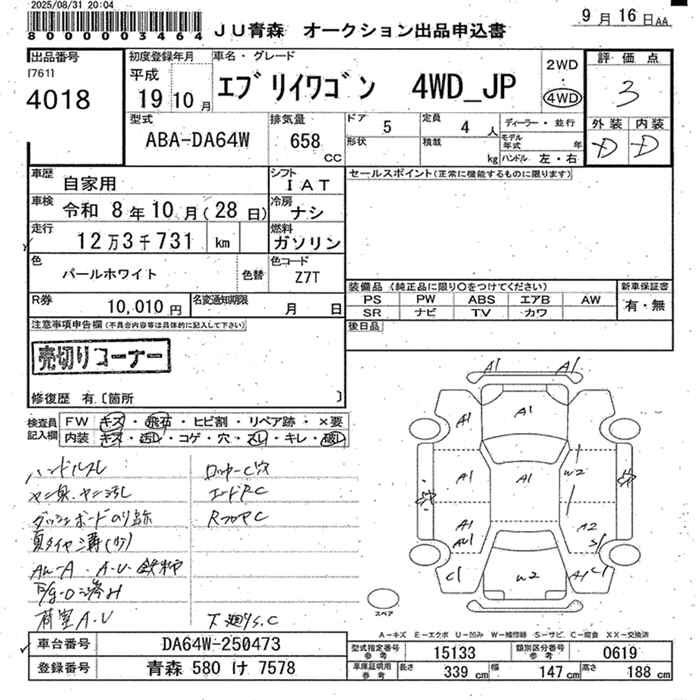 2025/08/31 20:04
8000003464
JU青森 オークション出品申込書
9月16日AA
出品番号
[761]
4018
初度登録年月
平成
19 10月
車名・グレード
エブリイワゴン 4WD_JP
2WD
・
4WD
評価点
3
外装 内装
D D
型式
ABA-DA64W
排気量
658
CC
ドア
5
定員
4人
形状
積載
kg
ディーラー・並行
モデル年式 年
ハンドル 左・右
車歴
自家用
シフト
IAT
車検
令和 8年10月(28日)
冷房
ナシ
走行
12万3千731 km
燃料
ガソリン
色
パールホワイト
色替
色コード
Z7T
R券
10,010円
名変通知期限
月 日
セールスポイント(正常に機能するものに限ります)
装備品(純正品に限り○をつけてください)
PS PW ABS エアB AW
SR ナビ TV カワ
新車保証書
有・無
後日品
注意事項申告欄(不具合内容等は具体的に記入して下さい)
売切りコーナー
修復歴 有〔箇所 〕
検査員記入欄
FW キズ・飛石・ヒビ割・リペア跡・×要
内装 キズ・汚レ・コゲ・穴・スレ・キレ・破レ
ハンドルスレ
ヤニ臭・ヤニ汚レ
ダッシュボードのり跡
AW-A
荷室A.U
エンドPC
RフロアC
下廻りS.C
A1 A1
A1 A1 A1
A1 A1 W2
A1 A2
C1 W2 A1 C1
スペア
A-キズ E-エクボ U-凹み W-補修跡 S-サビ C-腐食 XX-交換済
車台番号
DA64W-250473
登録番号
青森 580 け 7578
型式指定番号
参考
15133
類別区分番号
参考
0619
車庫証明用
参考
長さ
339 cm
幅
147 cm
高さ
188 cm